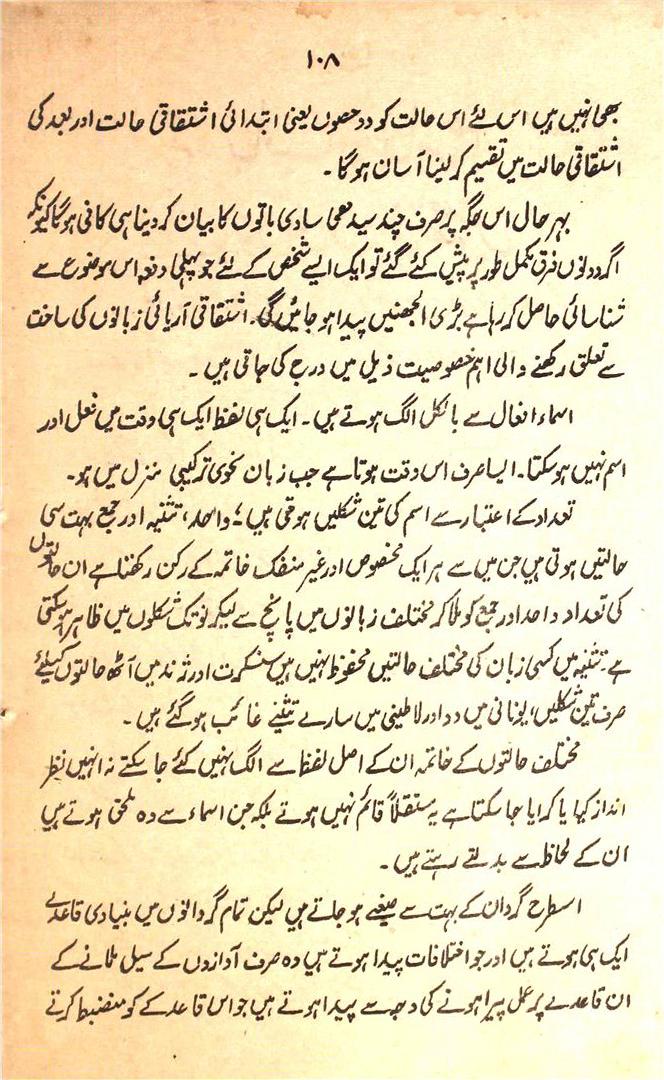 ۱۰۸
بھی نہیں ہیں اس لئے اس حالت کو دو حصوں یعنی ابتدائی اشتقاقی حالت اور بعد کی
اشتقاقی حالت میں تقسیم کر لینا آسان ہوگا۔
بہر حال اس جگہ پر صرف چند سیدھی سادی باتوں کا بیان کر دینا ہی کافی ہوگا کیونکہ
اگر دونوں فرق مکمل طور پر پیش کئے گئے تو ایک ایسے شخص کے لئے جو پہلی دفعہ اس موضوع سے
شناسائی حاصل کر رہا ہے بڑی الجھنیں پیدا ہو جائیں گی۔ اشتقاقی آریائی زبانوں کی ساخت
سے تعلق رکھنے والی اہم خصوصیت ذیل میں درج کی جاتی ہیں۔
اسماء افعال سے بالکل الگ ہوتے ہیں۔ ایک ہی لفظ ایک ہی وقت میں فعل اور
اسم نہیں ہو سکتا۔ ایسا صرف اس وقت ہوتا ہے جب زبان نحوی ترکیبی منزل میں ہو۔
تعداد کے اعتبار سے اسم کی تین شکلیں ہوتی ہیں؛ واحد، تثنیہ اور جمع بہت سی
حالتیں ہوتی ہیں جن میں سے ہر ایک مخصوص اور غیر منفک خاتمہ کے رکن رکھتا ہے ان حالتوں
کی تعداد واحد اور جمع کو ملا کر مختلف زبانوں میں پانچ سے لیکر نو تک شکلوں میں ظاہر ہو سکتی
ہے۔ تثنیہ میں کسی زبان کی مختلف حالتیں محفوظ نہیں ہیں سنسکرت اور ژند میں آٹھ حالتوں کیلئے
صرف تین شکلیں، یونانی میں دو اور لاطینی میں سارے تثنیے غائب ہو گئے ہیں۔
مختلف حالتوں کے خاتمہ ان کے اصل لفظ سے الگ نہیں کئے جا سکتے نہ انہیں نظر
انداز کیا یا کرایا جا سکتا ہے یہ مستقلاً قائم نہیں ہوتے بلکہ جن اسماء سے وہ ملحق ہوتے ہیں
ان کے لحاظ سے بدلتے رہتے ہیں۔
اسطرح گردان کے بہت سے صیغے ہو جاتے ہیں لیکن تمام گردانوں میں بنیادی قاعدے
ایک ہی ہوتے ہیں اور جو اختلافات پیدا ہوتے ہیں وہ صرف آوازوں کے میل ملانے کے
ان قاعدے پر عمل پیرا ہونے کی وجہ سے پیدا ہوتے ہیں جو اس قاعدے کو منضبط کرتے